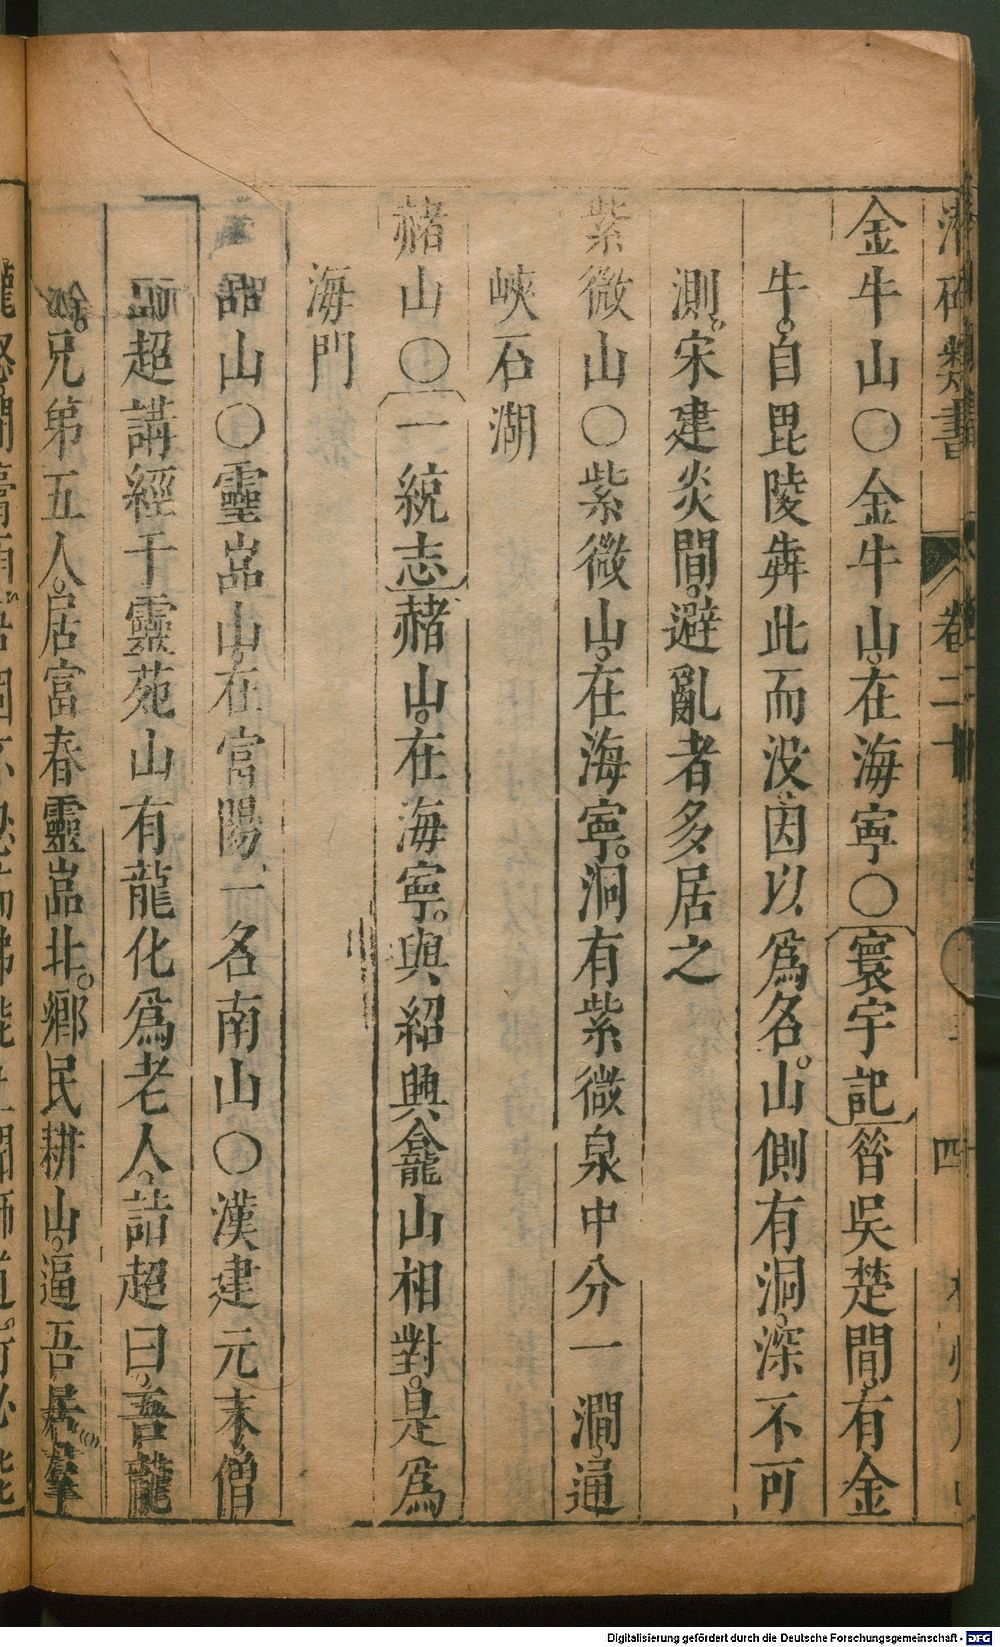 書 卷二十 四
金牛山〇金牛山。在海寧〇〔寰宇記〕晉吳楚間。有金
牛。自毘陵犇此而没。因以爲名。山側有洞。深不可
測。宋建炎間。避亂者多居之
紫微山〇紫微山。在海寧。洞有紫微泉中分一澗。通
峽石湖
赭山〇〔一統志〕赭山。在海寧。與紹興龕山相對。是爲
海門
嵓山〇靈嵓山。在富陽、一名南山〇漢建元末。僧
超講經于靈苑山有龍化爲老人。詰超曰。吾龍
兄弟五人。居富春靈嵓北。鄉民耕山。逼吾居羣
Digitalisierung gefördert durch die Deutsche Forschungsgemeinschaft - DFG